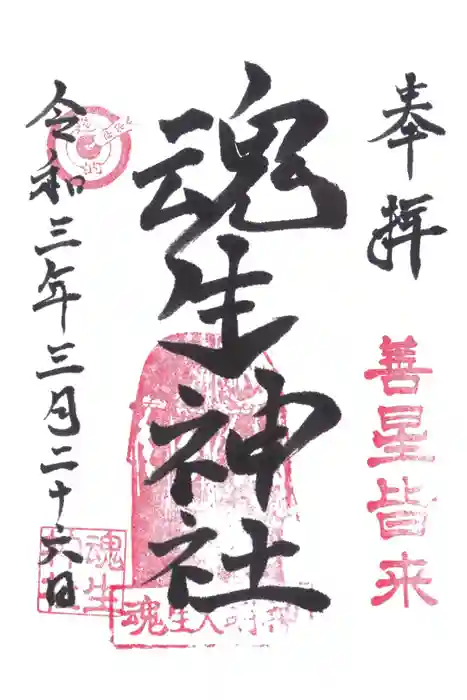 奉拝
善星皆来
魂生神社
魂生
令和三年三月二十六日
魂生